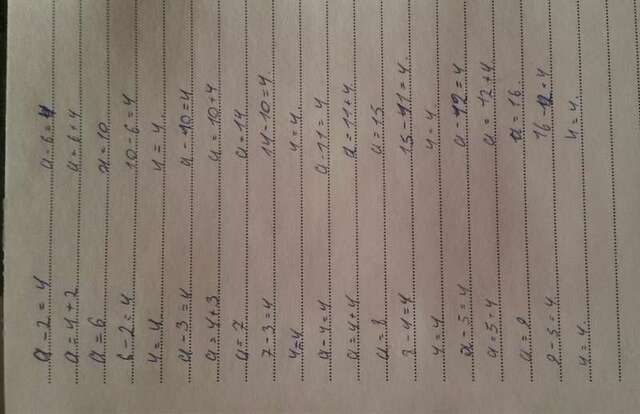 a - 2 = 4
a = 4 + 2
a = 6
6 - 2 = 4
4 = 4
a - 3 = 4
a = 4 + 3
a = 7
7 - 3 = 4
4 = 4
a - 4 = 4
a = 4 + 4
a = 8
8 - 4 = 4
4 = 4
a - 5 = 4
a = 5 + 4
a = 9
9 - 5 = 4
4 = 4.
a - 6 = 4
a = 6 + 4
a = 10
10 - 6 = 4
4 = 4.
a - 10 = 4
a = 10 + 4
a = 14
14 - 10 = 4.
4 = 4.
a - 11 = 4
a = 11 + 4
a = 15
15 - 11 = 4.
4 = 4
a - 12 = 4
a = 12 + 4
a = 16
16 - 12 = 4
4 = 4.